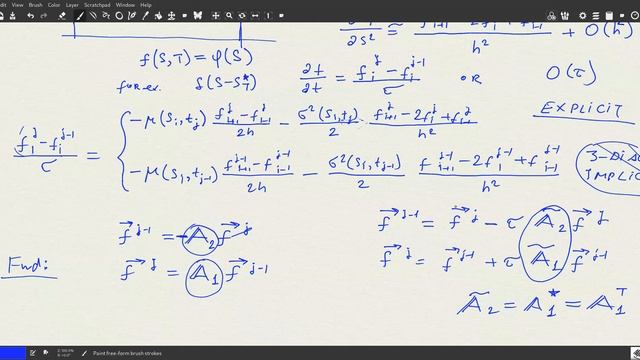 Edit View Brush Color Layer Scratchpad Window Help
∂s² ≅ h² + O(h²)
f(S,T) = φ(S)
for ex. δ(S-S*_T)
∂f/∂t = (f_i^j - f_i^{j-1})/τ or O(τ)
EXPLICIT
(f_i^j - f_i^{j-1})/τ = { -μ(S_i,t_j) (f_{i+1}^j - f_{i-1}^j)/2h - σ²(S_i,t_j)/2 · (f_{i+1}^j - 2f_i^j + f_{i-1}^j)/h²
-μ(S_i,t_{j-1}) (f_{i+1}^{j-1} - f_{i-1}^{j-1})/2h - σ²(S_i,t_{j-1})/2 · (f_{i+1}^{j-1} - 2f_i^{j-1} + f_{i-1}^{j-1})/h²
IMPLIC
f⃗^{j-1} = A_2 f⃗^j
f⃗^{j-1} = f⃗^j - τ Ã_2 f⃗^j
Find: f⃗^j = A_1 f⃗^{j-1}
f⃗^j = f⃗^{j-1} + τ Ã_1 f⃗^{j-1}
Ã_2 = A_1^* = A_1^T
Paint free-form brush strokes